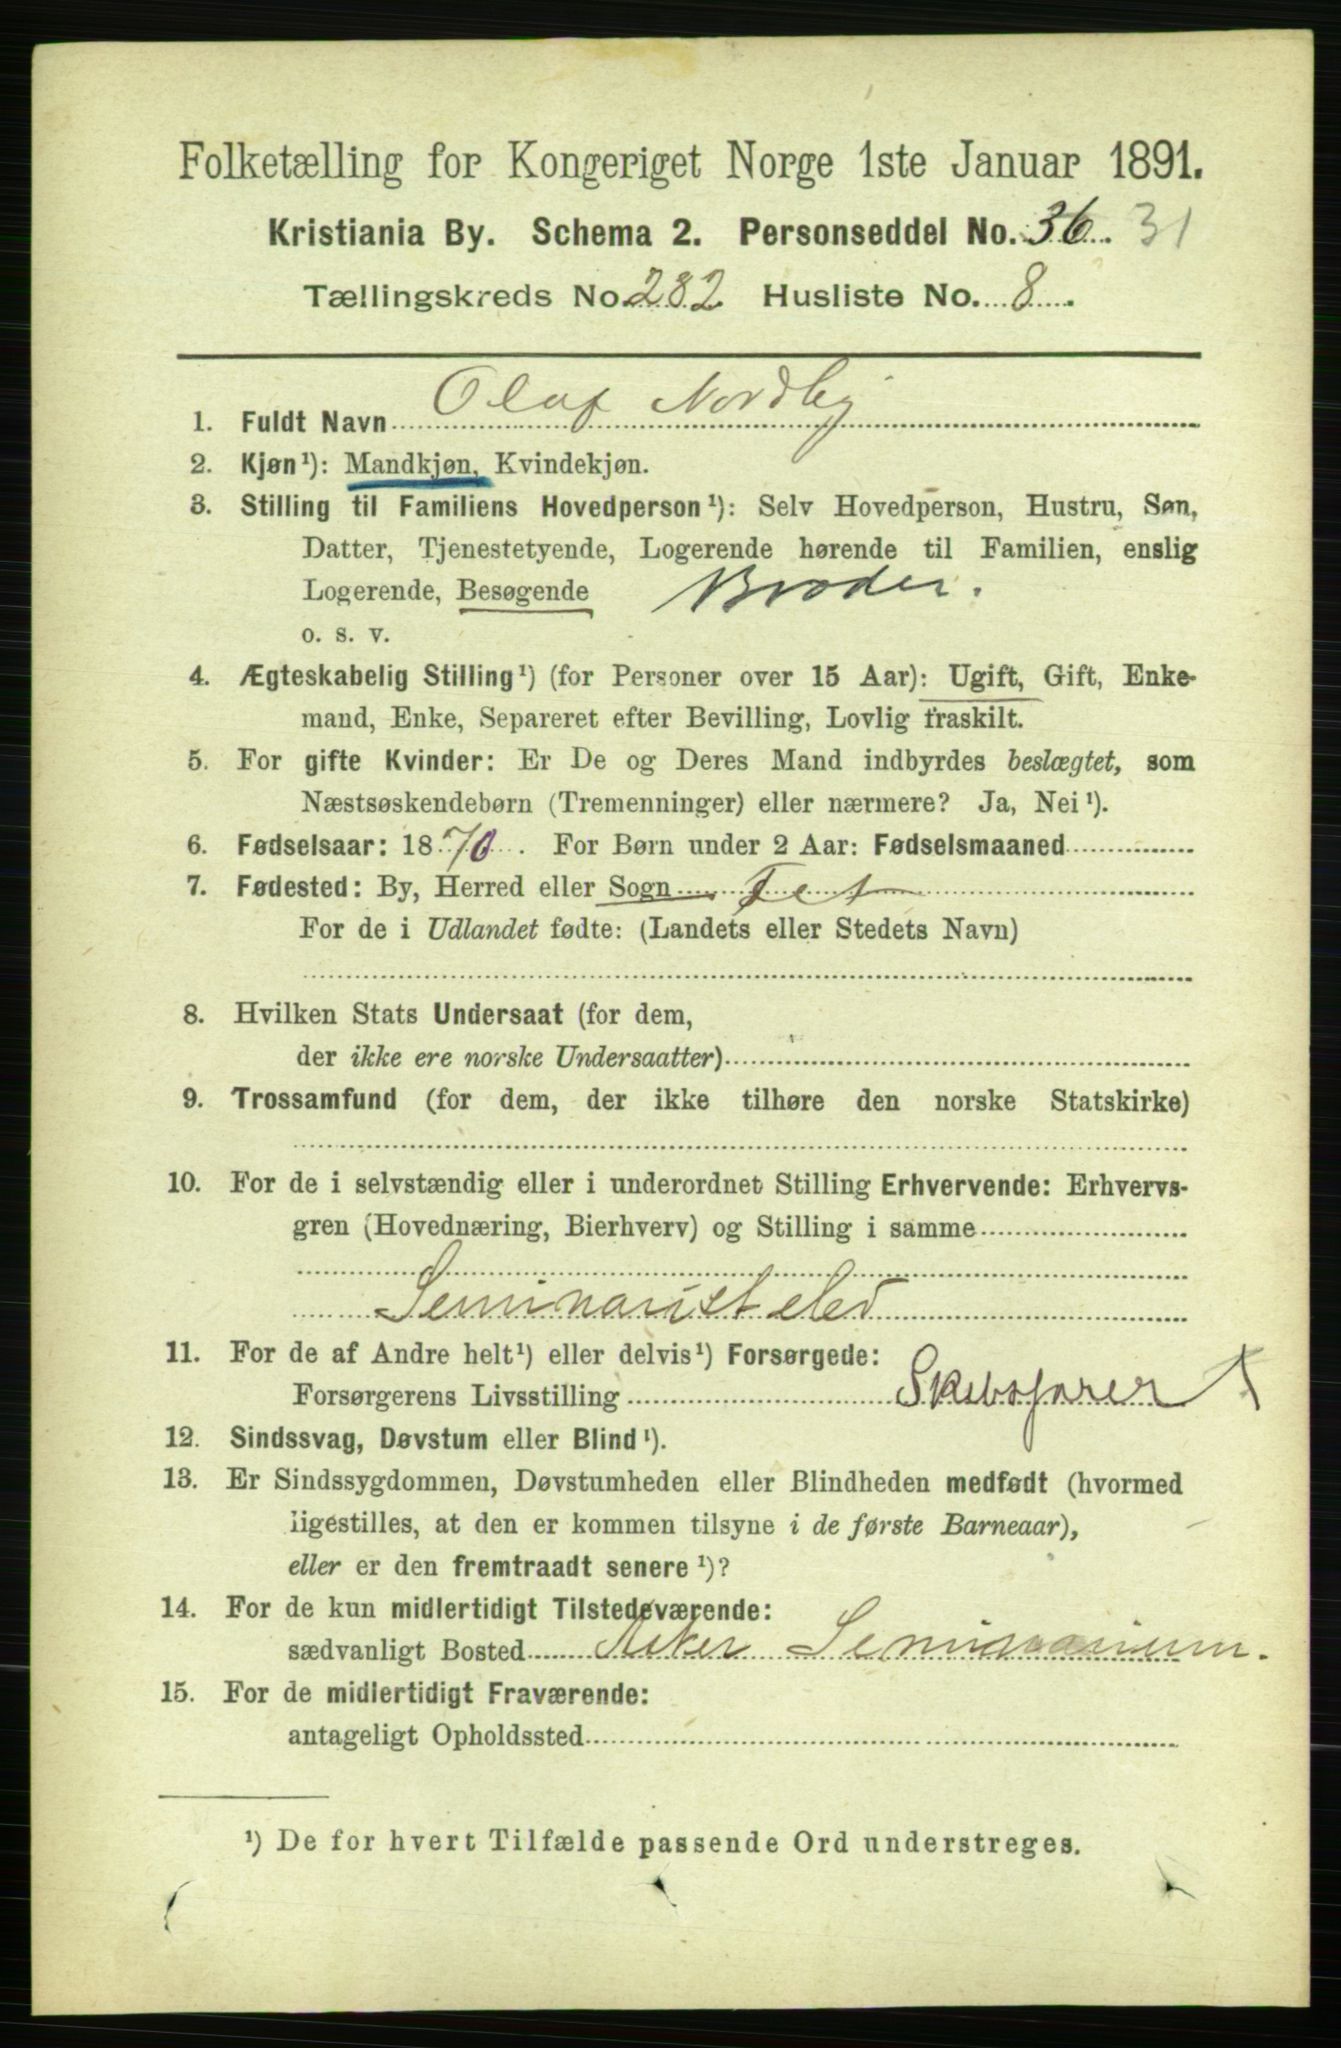 Folketælling for Kongeriget Norge 1ste Januar 1891.
Kristiania By. Schema 2. Personseddel No. 36. 31
Tællingskreds No. 282 Husliste No. 8.
1. Fuldt Navn Olaf Nordby
2. Kjøn¹): Mandkjøn, Kvindekjøn.
3. Stilling til Familiens Hovedperson¹): Selv Hovedperson, Hustru, Søn,
Datter, Tjenestetyende, Logerende hørende til Familien, enslig
Logerende, Besøgende Broder.
o. s. v.
4. Ægteskabelig Stilling¹) (for Personer over 15 Aar): Ugift, Gift, Enke-
mand, Enke, Separeret efter Bevilling, Lovlig fraskilt.
5. For gifte Kvinder: Er De og Deres Mand indbyrdes beslægtet, som
Næstsøskendebørn (Tremenninger) eller nærmere? Ja, Nei¹).
6. Fødselsaar: 1870. For Børn under 2 Aar: Fødselsmaaned
7. Fødested: By, Herred eller Sogn Fet
For de i Udlandet fødte: (Landets eller Stedets Navn)
8. Hvilken Stats Undersaat (for dem,
der ikke ere norske Undersaatter)
9. Trossamfund (for dem, der ikke tilhøre den norske Statskirke)
10. For de i selvstændig eller i underordnet Stilling Erhvervende: Erhvervs-
gren (Hovednæring, Bierhverv) og Stilling i samme
Seminaristelev
11. For de af Andre helt¹) eller delvis¹) Forsørgede:
Forsørgerens Livsstilling Skibsfører
12. Sindssvag, Døvstum eller Blind¹).
13. Er Sindssygdommen, Døvstumheden eller Blindheden medfødt (hvormed
ligestilles, at den er kommen tilsyne i de første Barneaar),
eller er den fremtraadt senere¹)?
14. For de kun midlertidigt Tilstedeværende:
sædvanligt Bosted Asker Seminarium.
15. For de midlertidigt Fraværende:
antageligt Opholdssted
¹) De for hvert Tilfælde passende Ord understreges.